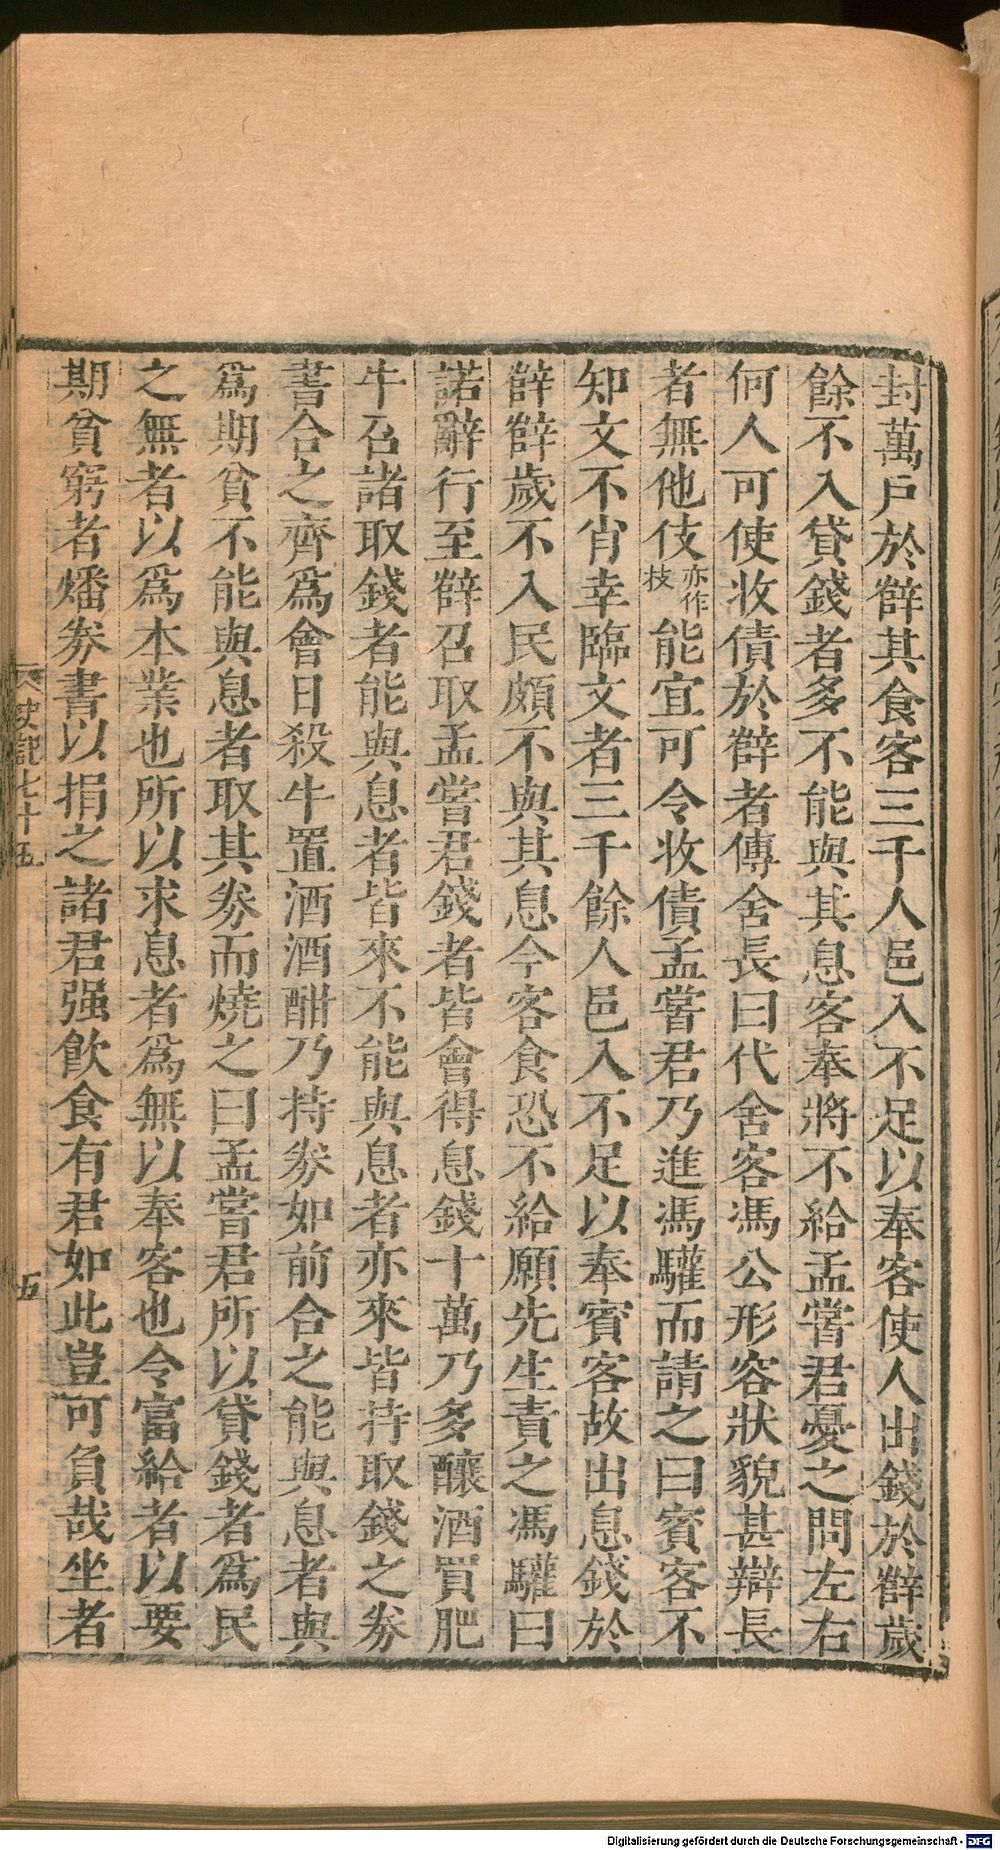 封萬戶於薛其食客三千人邑入不足以奉客使人出錢於薛歲
餘不入貸錢者多不能與其息客奉將不給孟嘗君憂之問左右
何人可使收債於薛者傳舍長曰代舍客馮公形容狀貌甚辯長
者無他伎亦作枝能宜可令收債孟嘗君乃進馮驩而請之曰賓客不
知文不肖幸臨文者三千餘人邑入不足以奉賓客故出息錢於
薛薛歲不入民頗不與其息今客食恐不給願先生責之馮驩曰
諾辭行至薛召取孟嘗君錢者皆會得息錢十萬乃多釀酒買肥
牛召諸取錢者能與息者皆來不能與息者亦來皆持取錢之券
書合之齊爲會日殺牛置酒酒酣乃持券如前合之能與息者與
爲期貧不能與息者取其券而燒之曰孟嘗君所以貸錢者爲民
之無者以爲本業也所以求息者爲無以奉客也令富給者以要
期貧窮者燔券書以捐之諸君强飲食有君如此豈可負哉坐者
史記七十五
五
Digitalisierung gefördert durch die Deutsche Forschungsgemeinschaft - DFG